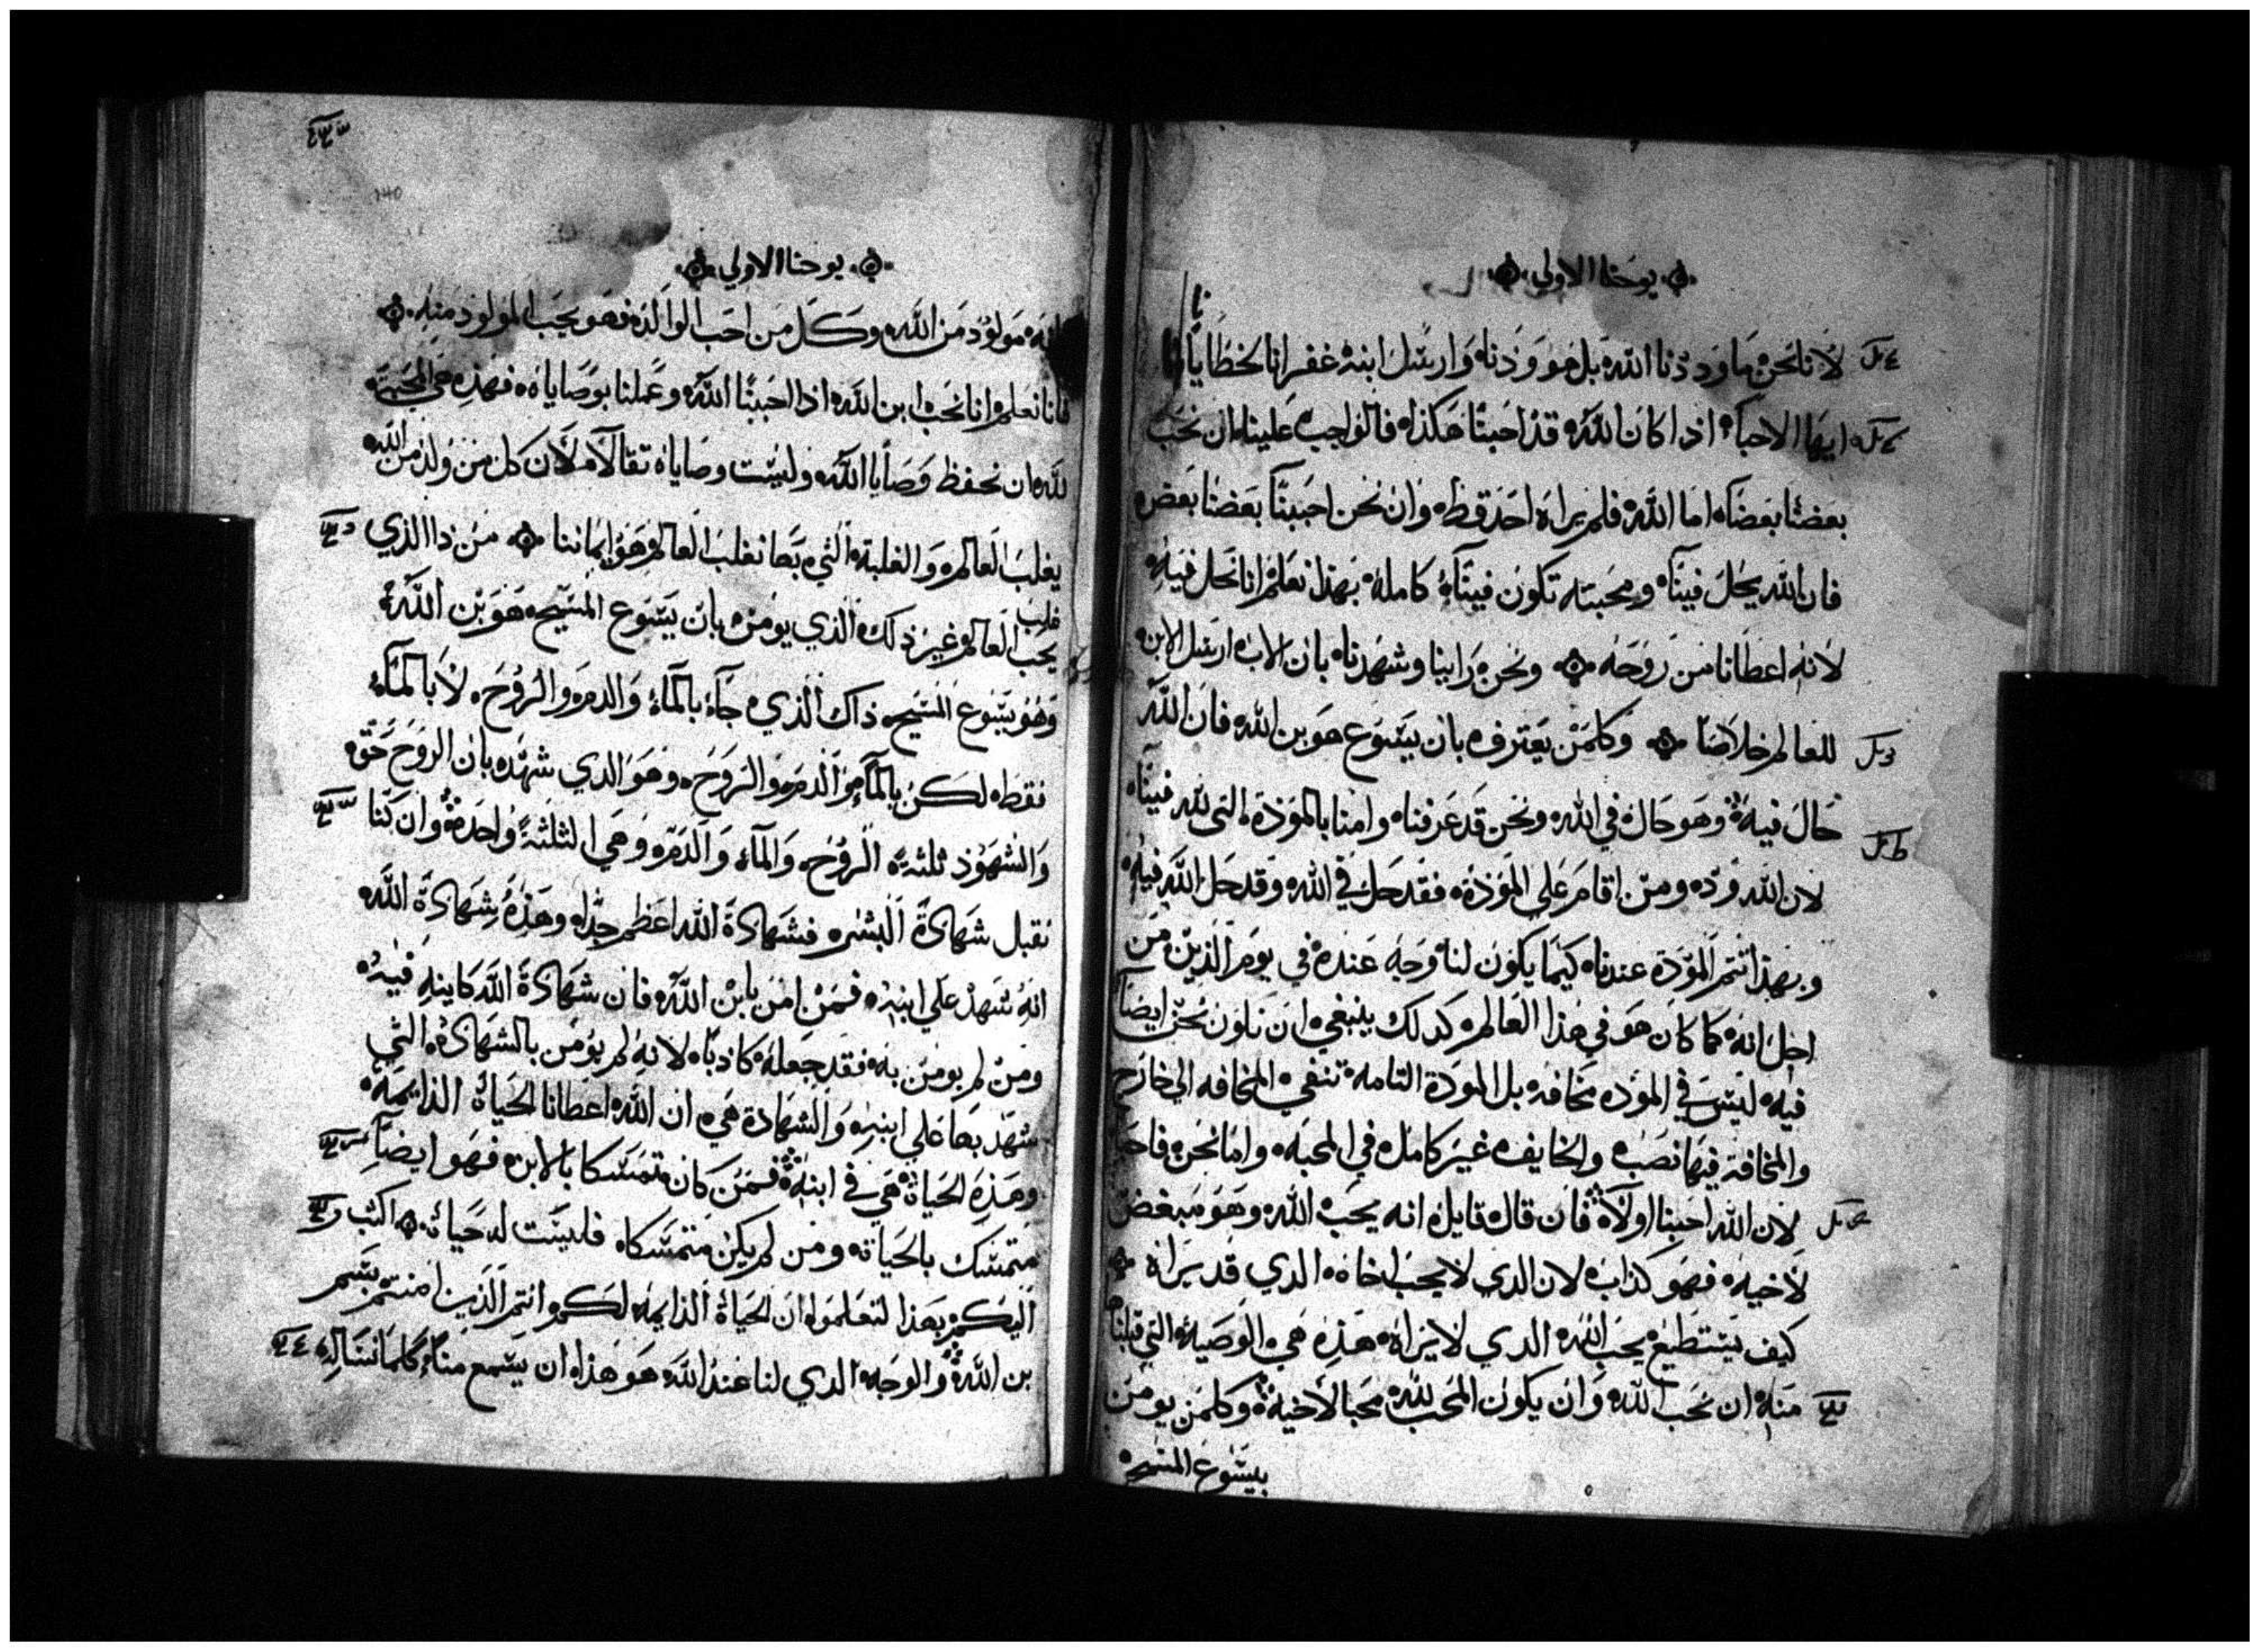 يوحنا الاولي
لانا نحن ما وددنا الله بل هو ودنا وارسل ابنه غفرانا لخطايانا
ايها الاحباء اذا كان الله قد احبنا هكذا فالواجب علينا ان نحب
بعضنا بعضا اما الله فلم يراه احد قط وان نحن احببنا بعضنا بعض
فان الله يحل فينا ومحبته تكون فينا كاملة بهذا نعلم انا نحل فيه
لانه اعطانا من روحه ونحن راينا وشهدنا بان الاب ارسل الابن
للعالم خلاصا وكلمن يعترف بان يسوع هو بن الله فان الله
حال فيه وهو حال في الله ونحن قد عرفنا وامنا بالموذة التي لله فينا
لان الله ود ومن اقام على الموذة فقد حل في الله وقد حل الله فيه
وبهذا تتم المودة عندنا كيما يكون لنا وجه عنده في يوم الدين من
اجل انه كما كان هو في هذا العالم كدلك ينبغي ان نكون نحن ايضا
فيه ليس في الموده مخافه بل المودة التامة تنفي المخافه الي خارج
والمخافة فيها نصب والخايف غير كامل في المحبه واما نحن
لان الله احبنا اولا فان قال قايل انه يحب الله وهو مبغض
لاخيه فهو كذاب لان الدي لا يحب اخاه الدي قد يراه
كيف يستطيع يحب الله الدي لا يراه هذه هي الوصية التي قبلنا
منه ان نحب الله وان يكون المحب لله محبا لاخيه وكلمن يومن
بيسوع المسيح
يوحنا الاولي
انه مولود من الله وكل من احب الوالد فهو يحب المولود منه
فانا نعلم انا نحب ابن الله اذا احببنا الله وعملنا بوصاياه فهذه هي المحبة
لله ان نحفظ وصايا الله وليست وصاياه تقالا لان كل من ولد من الله
يغلب العالم والغلبة التي بها نغلب العالم هو ايماننا من ذا الذي
يحب العالم غير ذلك الذي يومن بان يسوع المسيح هو بن الله
وهو يسوع المسيح ذاك الذي جاء بالماء والدم والروح لا بالماء
فقط لكن بالماء والدم والروح وهو الدي شهد بان الروح حق
والشهود ثلثة الروح والماء والدم وهي الثلثة واحدة وان كنا
نقبل شهادة البشر فشهادة الله اعظم جدا وهذه شهادة الله
انه شهد علي ابنه فمن امن بابن الله فان شهادة الله كاينه فيه
ومن لم يومن به فقد جعله كاذبا لانه لم يومن بالشهادة التي
شهد بها علي ابنه والشهادة هي ان الله اعطانا الحياة الدايمة
وهذه الحياة هي في ابنه فمن كان متمسكا بالابن فهو ايضا
متمسك بالحياة ومن لم يكن متمسكا فليست له حياة اكتب
اليكم بهذا لتعلموا ان الحياة الدايمه لكم انتم الذين امنتم بسم
بن الله والوجه الدي لنا عند الله هو هذا ان يسمع منا كلما نساله